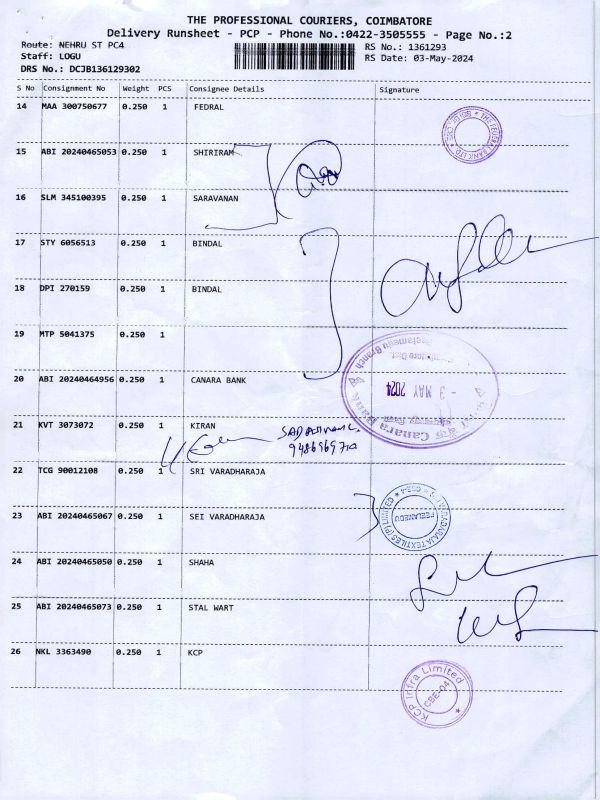 THE PROFESSIONAL COURIERS, COIMBATORE
Delivery Runsheet - PCP - Phone No.:0422-3505555 - Page No.:2
Route: NEHRU ST PC4
Staff: LOGU
DRS No.: DCJB136129302
RS No.: 1361293
RS Date: 03-May-2024
S No Consignment No Weight PCS Consignee Details Signature
14 MAA 300750677 0.250 1 FEDRAL
THE FEDERAL BANK LTD.
15 ABI 20240465053 0.250 1 SHIRIRAM
16 SLM 345100395 0.250 1 SARAVANAN
17 STY 6056513 0.250 1 BINDAL
18 DPI 270159 0.250 1 BINDAL
19 MTP 5041375 0.250 1
20 ABI 20240464956 0.250 1 CANARA BANK
Canara Bank
- 3 MAY 2024
Peelamedu Branch
Coimbatore Dist.
21 KVT 3073072 0.250 1 KIRAN
22 TCG 90012108 0.250 1 SRI VARADHARAJA
23 ABI 20240465067 0.250 1 SEI VARADHARAJA
VARADARAJA TEXTILES (P) LIMITED
PEELAMEDU
24 ABI 20240465050 0.250 1 SHAHA
25 ABI 20240465073 0.250 1 STAL WART
26 NKL 3363490 0.250 1 KCP
KCP Infra Limited
CBE-04